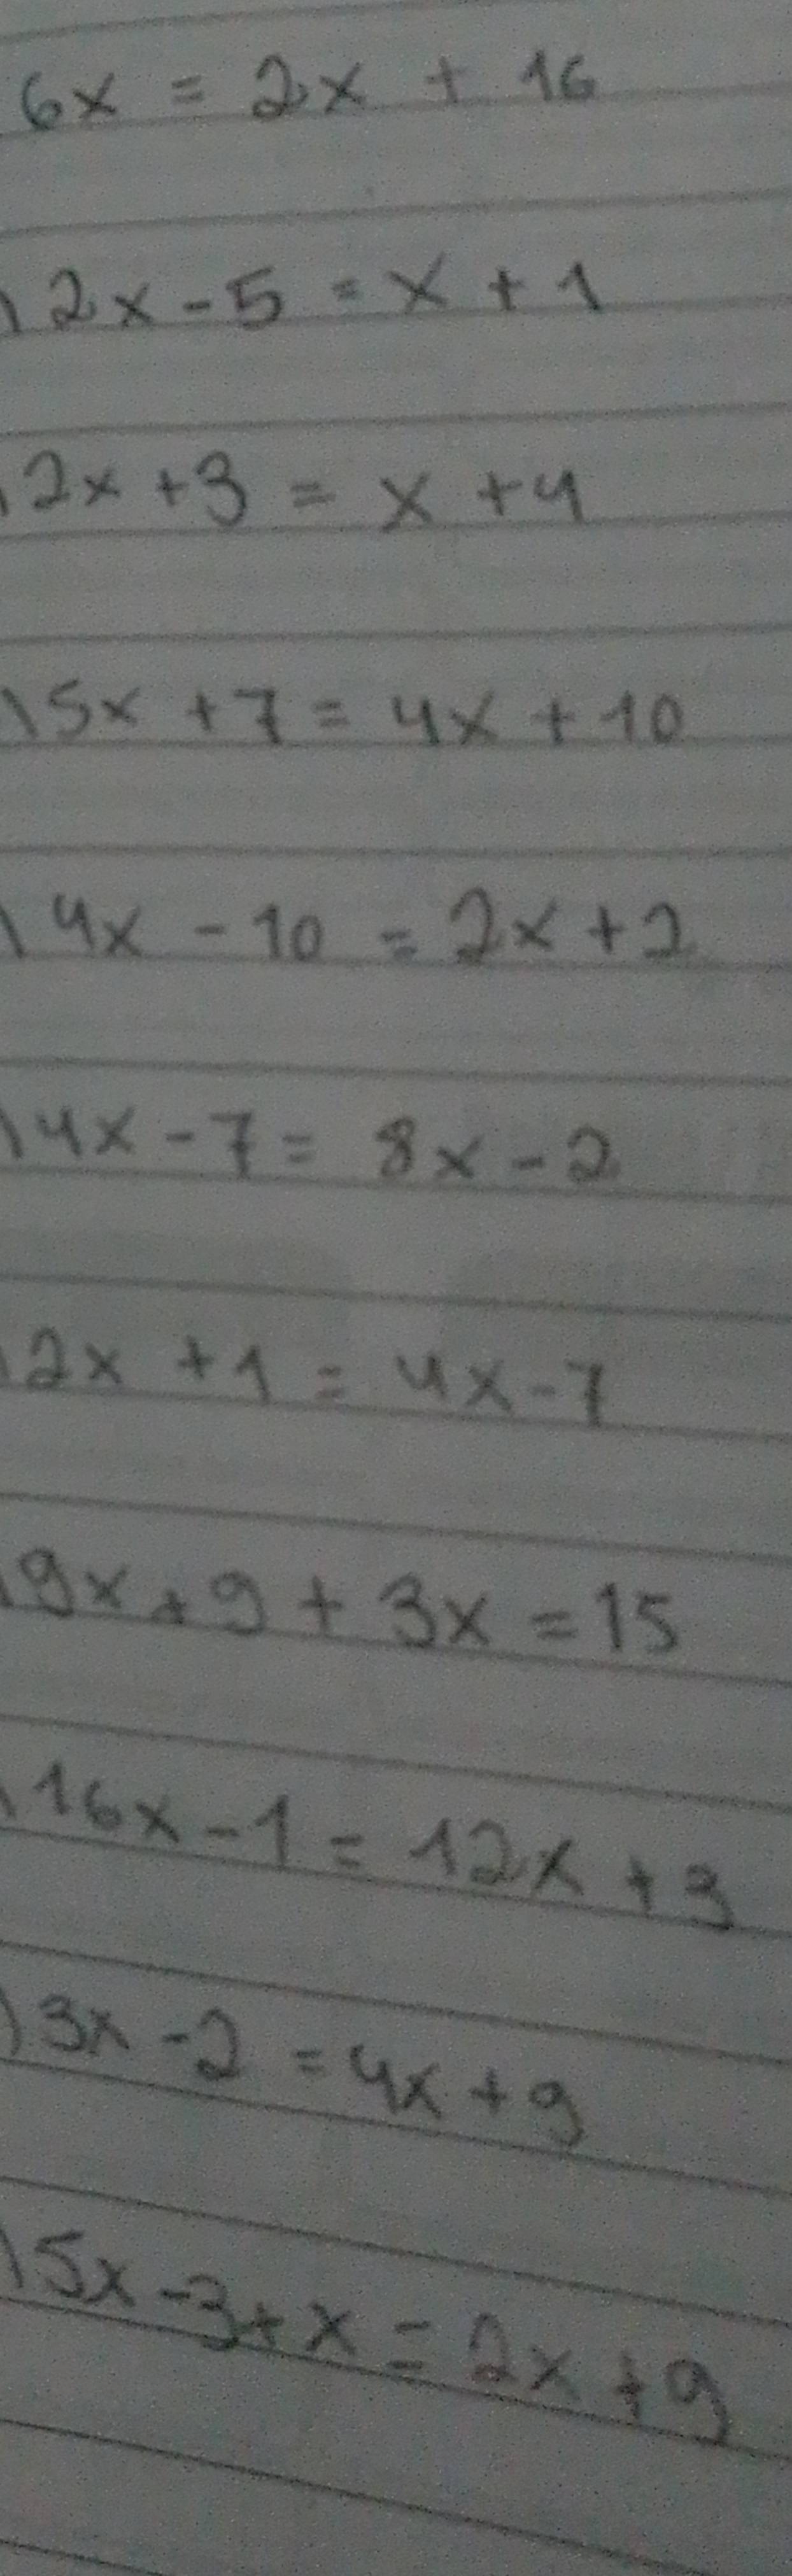 6x = 2x + 16
) 2x - 5 = x + 1
) 2x + 3 = x + 4
) 5x + 7 = 4x + 10
) 4x - 10 = 2x + 2
) 4x - 7 = 8x - 2
) 2x + 1 = 4x - 7
) 9x + 9 + 3x = 15
) 16x - 1 = 12x + 3
) 3x - 2 = 4x + 9
) 5x - 3 + x = 2x + 9